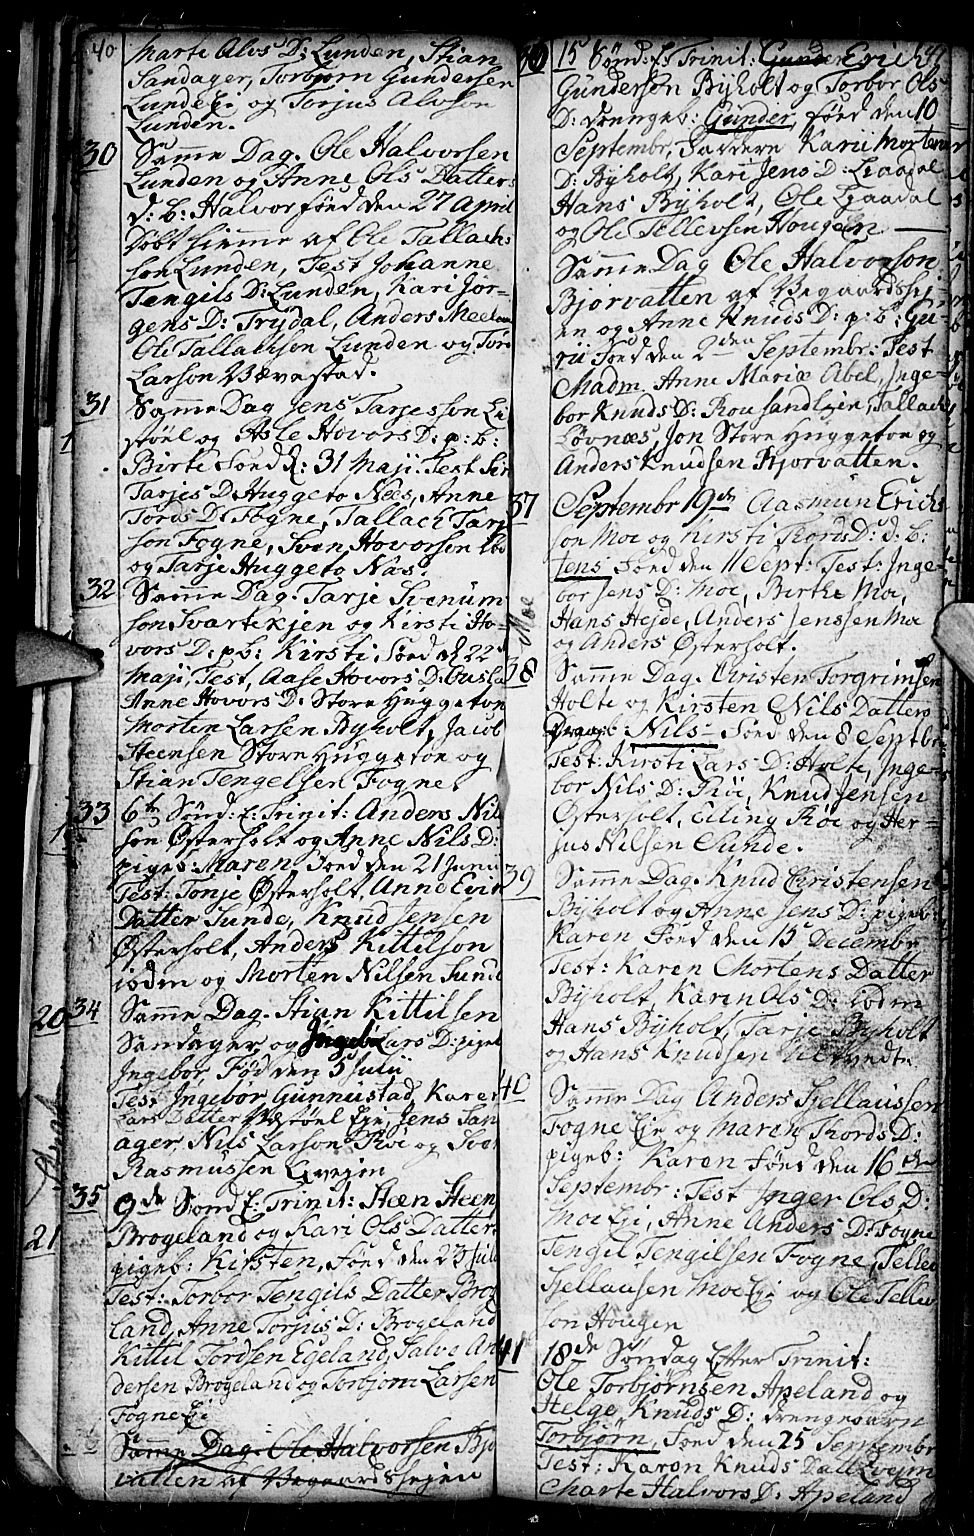 40
Marte Alvs D: Lunden, Stian
Sandager, Torbjorn Gundersen
Lunde Eje og Torjus Alvson
Lunden.
30 Samme Dag. Ole Halvorsen
Lunden og Anne Ols Datters
d: b: Halvor fönd den 27 April
döbt hiemme af Ole Tallachs
son Lunden, Test Johanne
Tengils D: Lunden, Kari Jör-
gens D: Trydal, Anders Meelan
Ole Tallachson Lunden og Tor
Larson Bævestad.
31 Samme Dag Jens Tarjesson Li
stöel og Asle Hovors D: p: b:
Birte Föed d: 31 Maji. Test Siri
Tarjes D: Huggeto Næs, Anne
Tords D: Fogne, Tallach Tarje
son Fogne, Sven Hovorsen
og Tarje Huggeto Næs.
32 Samme Dag. Tarje Svenum
son Svartekjen og Kirsti Ho-
vors D: p: b: Kirsti, Föed d: 22
Maji, Test, Aase Hovors D:
Anne Hovors D: Store Huggeton
Morten Larsen Byholt, Jacob
Steensen Store Huggeton og
Stian Tengelsen Fogne.
33 6te Sönd: E: Trinit: Anders Nils
son Österholt og Anne Nils D:
pigeb: Maren, Föed den 21 Junii
Test: Tonje Österholt, Anne Erik
Datter Sunde, Knud Jensen
Österholt, Anders Kittilson
Lödm og Morten Nilsen Sund
34 Samme Dag. Stian Kittilsen
Sandager, og Lars D: pigeb
Ingebor, Föd den 5 Julii
Test Ingebor Gunnustad, Karen
Lars Datter Vestöel Eje, Jens San
ager, Nils Larson Röe og Tor
Rasmussen
35 9de Sönd E: Trinit: Steen Steen
Brogeland og Kari Ols Datter
pigeb: Kirsten, Föed den 23 Juli
Test: Torbor Tengils Datter Brog
land, Anne Torjus D: Brogeland
Kittil Tordsen Egeland, Salve An
dersen Brogeland og Torbjorn Larsen
Fogne Eje
Samme Dag. Ole Halvorsen Bjo
vatten af Vegaardsheien
20
21
36 15 Sönd: E: Trinit: Gunder Erich
Gundersen Byholt og Torbor Ols
D: drengeb: Gunder, föed den 10
Septembr, Faddere Karii Mortens
D: Byholt, Kari Jens D: Liaadal
Hans Byholt, Ole Liaadal
og Ole Tellevsen Hougen
Samme Dag Ole Halvorson
Bjorvatten af Vegaardshej-
en og Anne Knuds D: p: b: Gu-
rii Föed den 2den Septembr: Test
Madm. Anne Mariæ Abel, Inge-
bor Knuds D: Rousandlejen, Tallach
Lövnæs, Jon Store Huggeton og
Anders Knudsen Bjorvatten.
37 Septembr 19de Aasmun Erichs
son Moe og Kirsti Thords D: d: b:
Jens Föed den 11 Sept: Test: Inge-
bor Jens D: Moe, Birthe Moe,
Hans Hejde, Anders Jenssen Moe
og Anders Österholt.
Moe
38 Samme Dag. Christen Torgrimsen
Holte og Kirsten Nils Datters
Drengb Nils Föed den 8 Septbr
Test: Kirsti Lars D: Holte, Inge-
bor Nils D: Röe, Knud Jensen
Österholt, Elling Roe og Her-
jus Nilsen Sunde.
39 Samme Dag. Knud Christensen
Byholt og Anne Jens D: pigeb:
Karen Föed den 15 Decembr
Test: Karen Mortens Datter
Byholt, Karen Ols D: Lödm
Hans Byholt, Tarje Byholt
og Hans Knudsen
40 Samme Dag Anders Sjellausen
Fogne Eje og Maren Thords D:
pigeb: Karen Föed den 16den
Septembr: Test Inger Ols D:
Moe Eje, Anne Anders D: Fogne
Tengil Tengilsen Fogne, Tellev
Sjellausen Moe Eje og Ole Tellev
son Hougen
41 18de Söndag Efter Trinit:
Ole Torbjörnsen Apeland og
Helge Knuds D: Drengebarn
Torbjörn, Föed den 25 Septembr
Test: Karen Knuds Datt
Marte Halvors D: Apeland